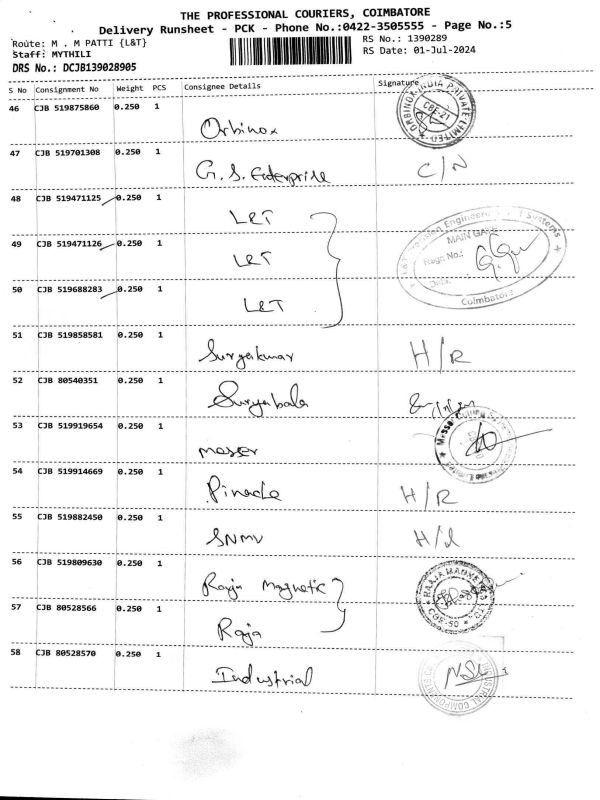 THE PROFESSIONAL COURIERS, COIMBATORE
Delivery Runsheet - PCK - Phone No.:0422-3505555 - Page No.:5
Route: M . M PATTI {L&T}
RS No.: 1390289
Staff: MYTHILI
RS Date: 01-Jul-2024
DRS No.: DCJB139028905
S No Consignment No Weight PCS Consignee Details Signature
46 CJB 519875860 0.250 1 Orbinox
ORBINOX INDIA PRIVATE LIMITED CBE-21
47 CJB 519701308 0.250 1 G. S. Enterprise C/N
48 CJB 519471125 0.250 1 L&T
49 CJB 519471126 0.250 1 L&T
MAIN GATE
Regn No.:
Date:
Coimbatore
50 CJB 519688283 0.250 1 L&T
51 CJB 519858581 0.250 1 Suryakumar H/R
52 CJB 80540351 0.250 1 Suryabala
53 CJB 519919654 0.250 1 messer
54 CJB 519914669 0.250 1 Pinacle H/R
55 CJB 519882450 0.250 1 SNMV H/d
56 CJB 519809630 0.250 1 Raja Magnetic
57 CJB 80528566 0.250 1 Raja
58 CJB 80528570 0.250 1 Industrial